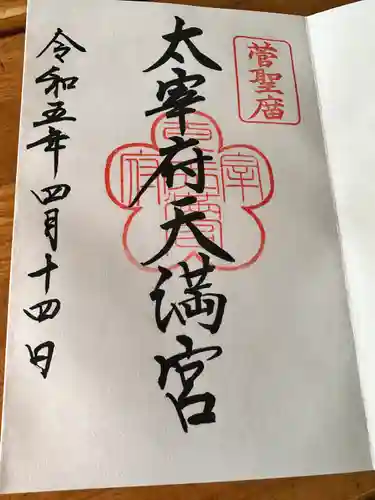 菅聖廟
太宰府天満宮
令和五年四月十四日